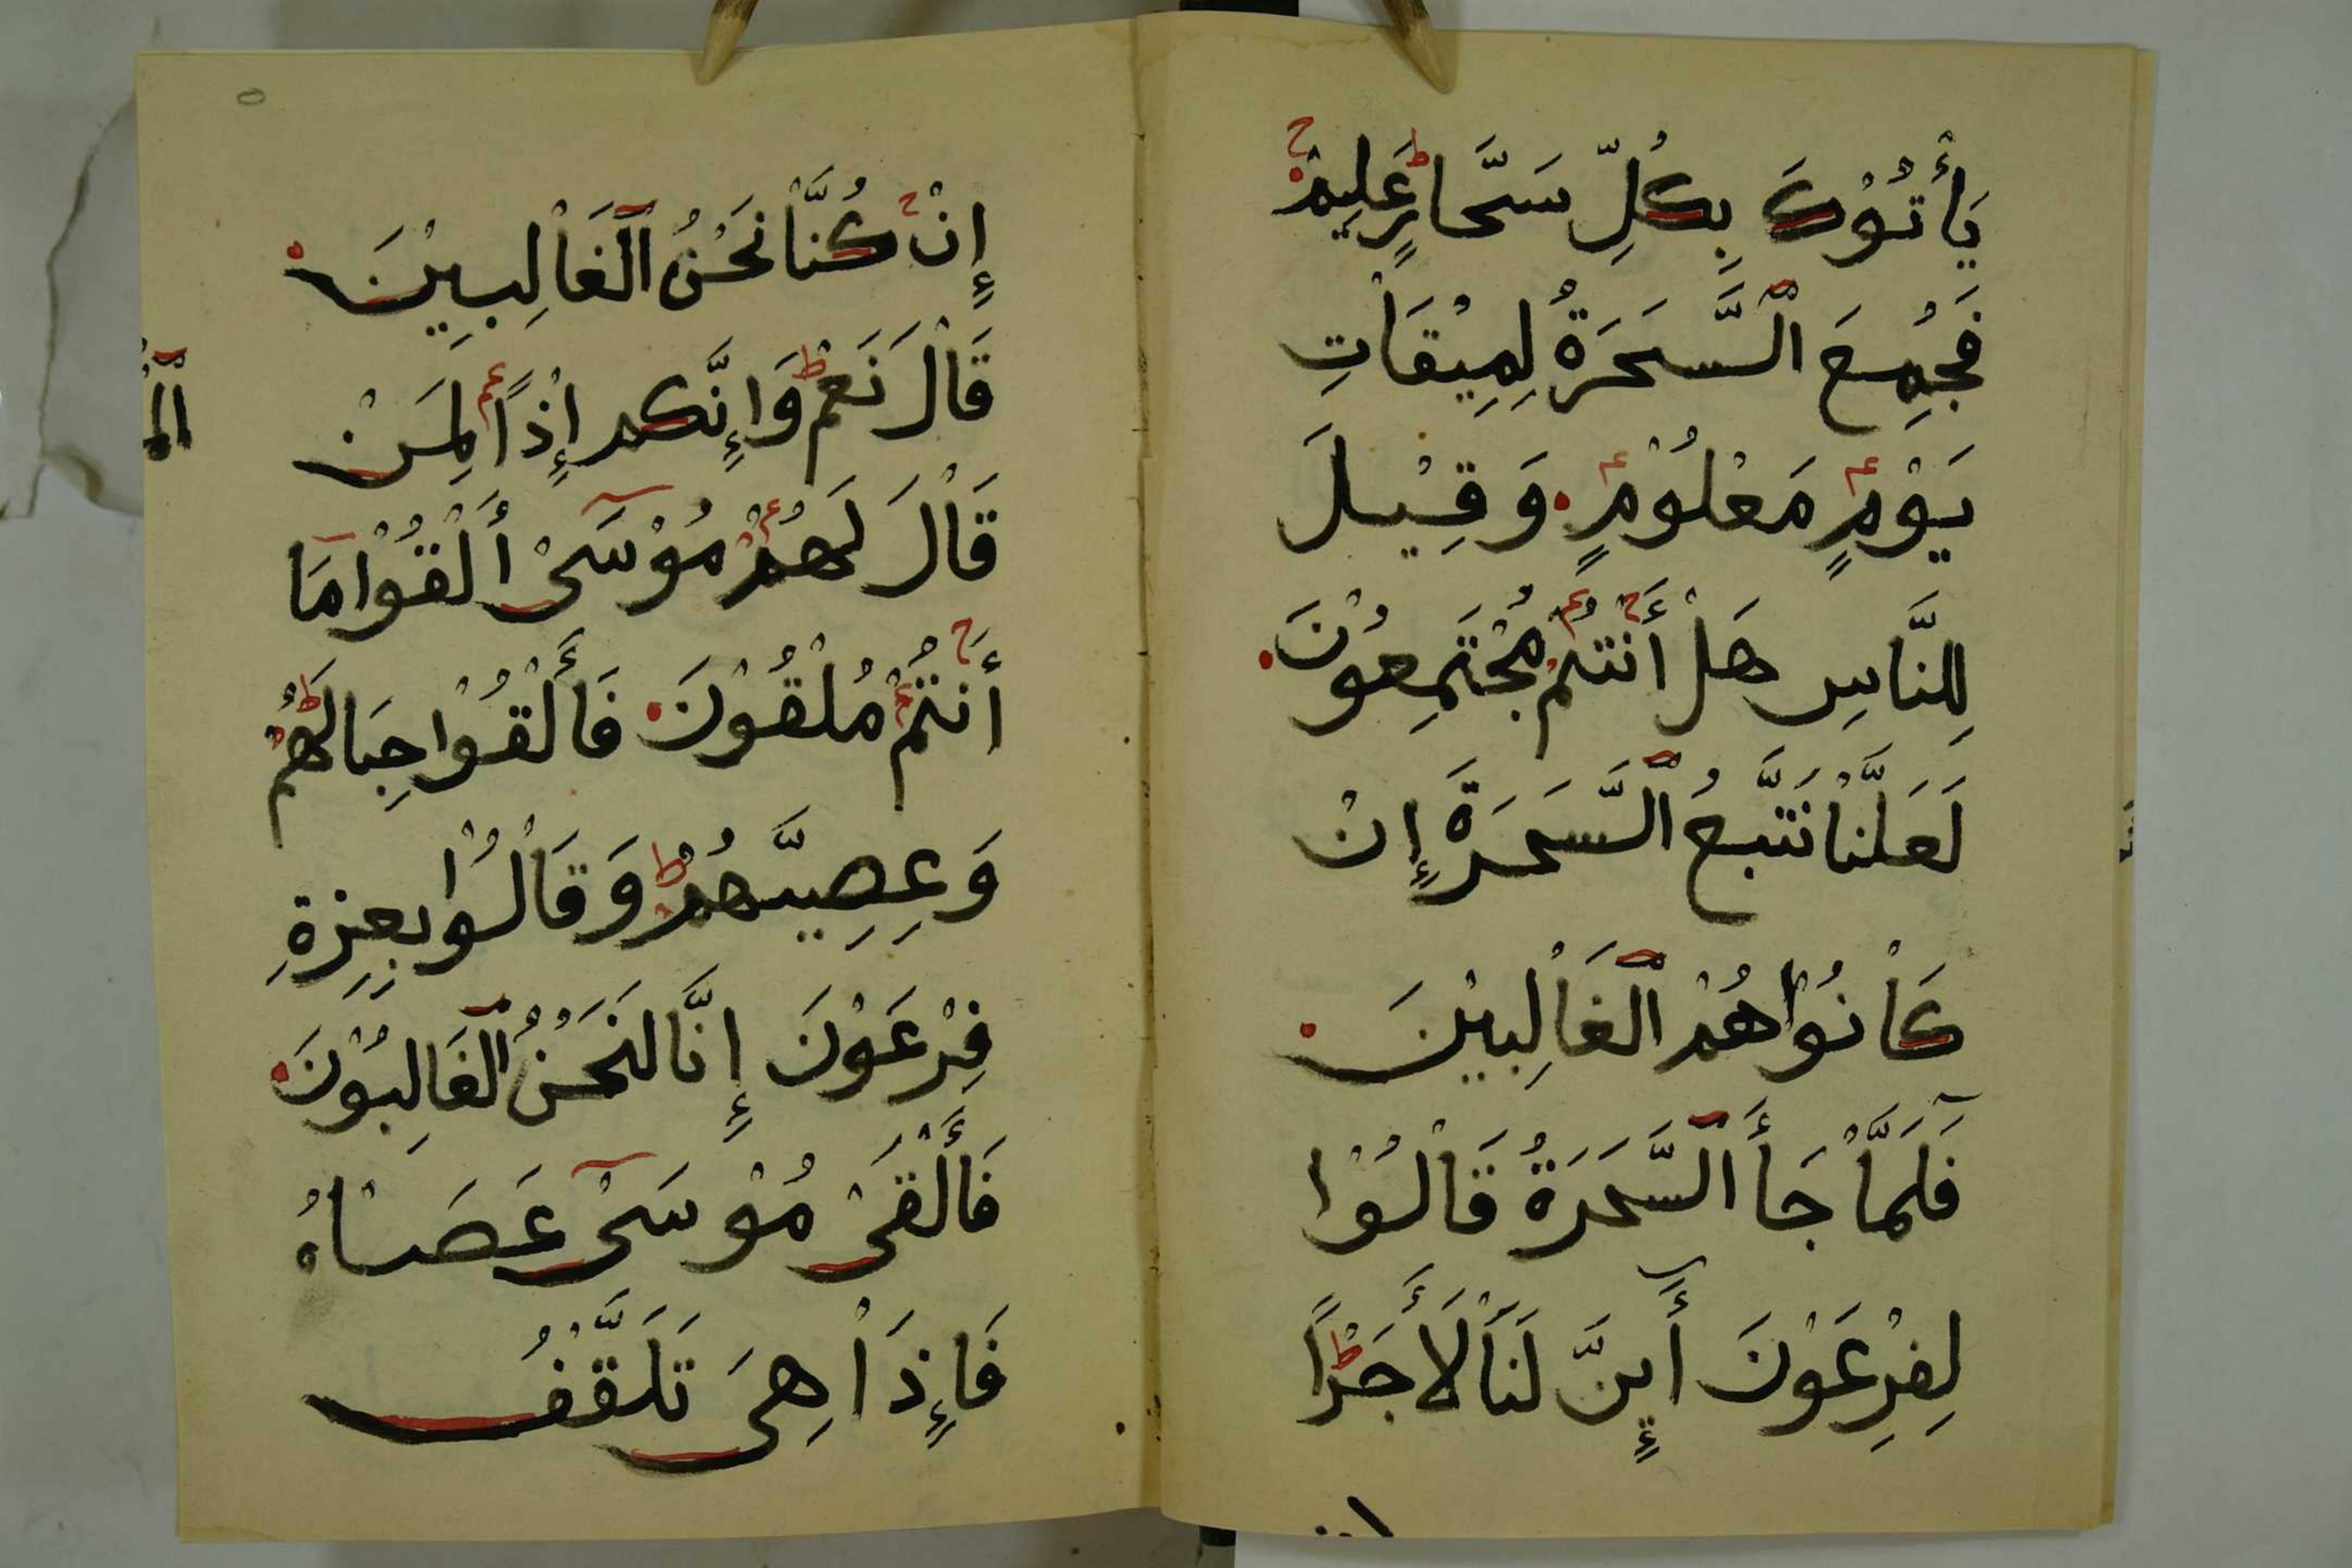 يَأْتُوْكَ بِكُلِّ سَحَّارٍ عَلِيمْ
فَجُمِعَ ٱلسَّحَرَةُ لِمِيْقَاْتِ
يَوْمٍ مَعْلُوْمٍ وَقِيْلَ
لِلنَّاسِ هَلْ أَنْتُمْ مُجْتَمِعُوْنَ
لَعَلَّنَاْ نَتَّبِعُ ٱلسَّحَرَةَ إِنْ
كَاْنُوْا هُمْ ٱلْغَاْلِبِيْنَ
فَلَمَّاْ جَأَ ٱلسَّحَرَةُ قَاْلُوْا
لِفِرْعَوْنَ أَإِنَّ لَنَاْ لَأَجَرْاً
إن
٥
إِنْ كُنَّاْ نَحْنُ ٱلْغَاْلِبِيْنَ
قَاْلَ نَعَمْ وَإِنَّكم إِذْاً لَمِنْ
قَاْلَ لَهُمْ مُوْسَىْ أَلْقُوْا مَا
أَنْتُمْ مُلْقُوْنَ فَأَلْقُوْا حِبَالَهُمْ
وَعِصِيَّهُمْ وَقَاْلُوْا بِعِزةِ
فِرْعَوْنَ إِنَّا لَنَحْنُ ٱلْغَالِبُوْنَ
فَأَلْقَىْ مُوْسَىْ عَصَاْهُ
فَإِذَاْ هِىَ تَلَقَّفُ